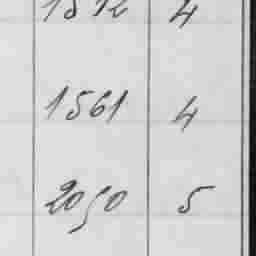 1512 4
1561 4
2050 5